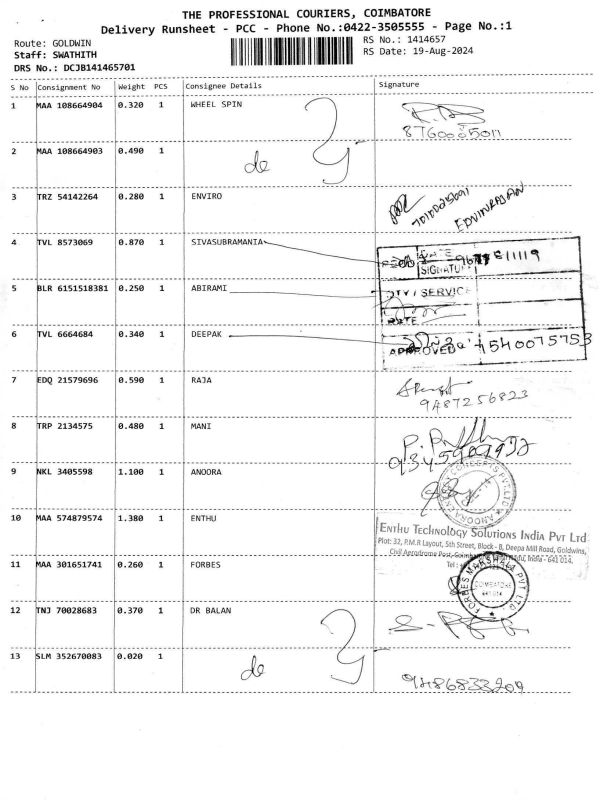 THE PROFESSIONAL COURIERS, COIMBATORE
Delivery Runsheet - PCC - Phone No.:0422-3505555 - Page No.:1
Route: GOLDWIN
RS No.: 1414657
Staff: SWATHITH
RS Date: 19-Aug-2024
DRS No.: DCJB141465701
S No Consignment No Weight PCS Consignee Details Signature
1 MAA 108664904 0.320 1 WHEEL SPIN
2 MAA 108664903 0.490 1 de
3 TRZ 54142264 0.280 1 ENVIRO
EDVINRAJAN
4 TVL 8573069 0.870 1 SIVASUBRAMANIA
SIGNATURE
5 BLR 6151518381 0.250 1 ABIRAMI
QTY / SERVICE
RATE
6 TVL 6664684 0.340 1 DEEPAK
APPROVED 7540075753
7 EDQ 21579696 0.590 1 RAJA
9487256823
8 TRP 2134575 0.480 1 MANI
9 NKL 3405598 1.100 1 ANOORA
10 MAA 574879574 1.380 1 ENTHU
ENTHU TECHNOLOGY SOLUTIONS INDIA PVT LTD
Plot: 32, P.M.R Layout, 5th Street, Block - B, Deepa Mill Road, Goldwins,
Civil Aerodrome Post, India - 641 014.
Tel :
11 MAA 301651741 0.260 1 FORBES
FORBES MARSHALL PVT LTD
COIMBATORE
641 014
12 TNJ 70028683 0.370 1 DR BALAN
13 SLM 352670083 0.020 1 de
9486833209